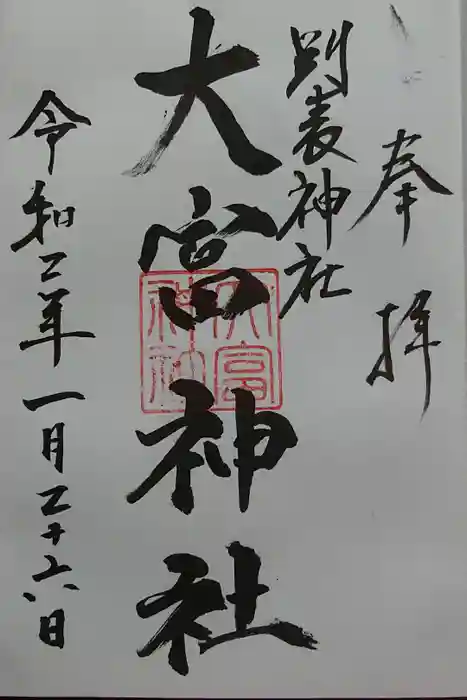 奉拝
別表神社
大富神社
令和二年一月二十六日
大富
神社